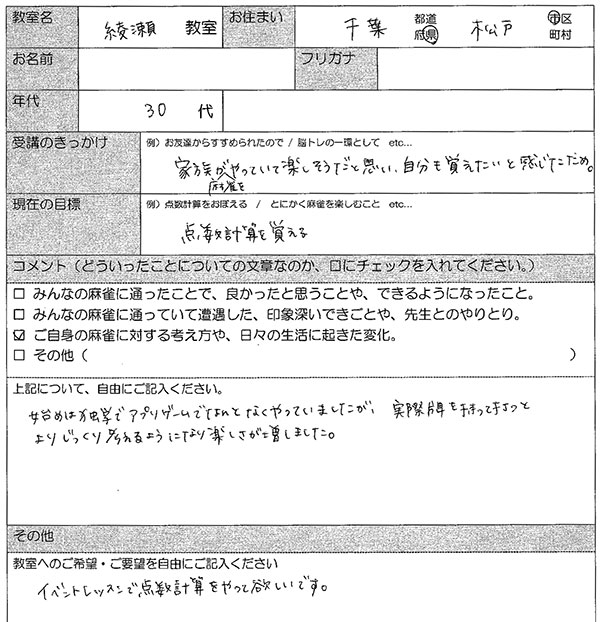 教室名 綾瀬 教室 お住まい 千葉 都道府県 松戸 市区町村
お名前 フリガナ
年代 30 代
受講のきっかけ 例）お友達からすすめられたので / 脳トレの一環として etc...
家族が麻雀をやっていて楽しそうだと思い、自分も覚えたいと感じたため。
現在の目標 例）点数計算をおぼえる / とにかく麻雀を楽しむこと etc...
点数計算を覚える
コメント（どういったことについての文章なのか、□にチェックを入れてください。）
□ みんなの麻雀に通ったことで、良かったと思うことや、できるようになったこと。
□ みんなの麻雀に通っていて遭遇した、印象深いできごとや、先生とのやりとり。
☑ ご自身の麻雀に対する考え方や、日々の生活に起きた変化。
□ その他（ ）
上記について、自由にご記入ください。
始めは独学でアプリゲームでなんとなくやっていましたが、実際牌を持って打つと
よりじっくり考えるようになり楽しさが増しました。
その他
教室へのご希望・ご要望を自由にご記入ください
イベントレッスンで点数計算をやって欲しいです。